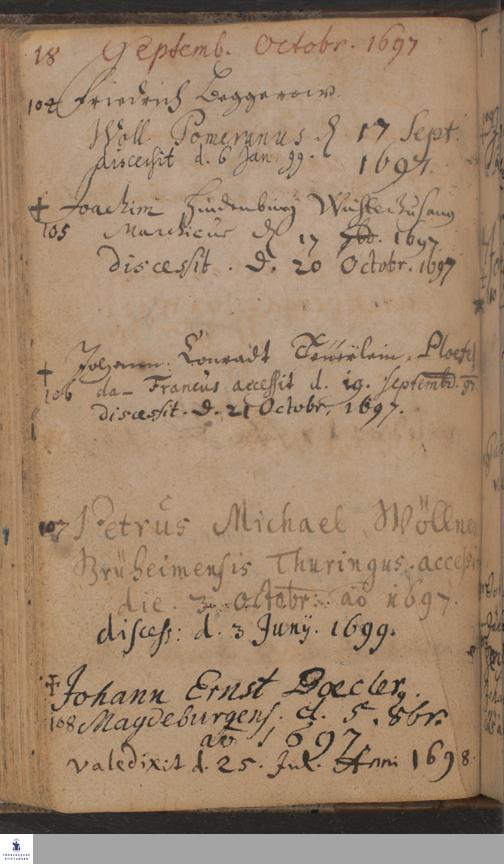 18 Septemb. Octobr. 1697
104 Friedrich Beggerow
Woll. Pomeranus d 17 Sept.
discessit d. 6 Jan 99. 1697.
+ Joachim Hindenburg
105 Marchicus d 17 7br. 1697
discessit. d. 20 Octobr. 1697
Johann Conradt
+ 106 da-Francus accessit d. 19. Septembr. 97.
discessit. d. 21 Octobr. 1697.
107 Petrus Michael Wöllne
Brüheimensis Thuringus. accessi
die 3. octobr. ao 1697.
discess: d. 3 Junij. 1699.
+ Johann Ernst Doecler,
108 Magdeburgens. d. 5. 8br.
ao 1697
valedixit d. 25. Jul. Anni 1698.